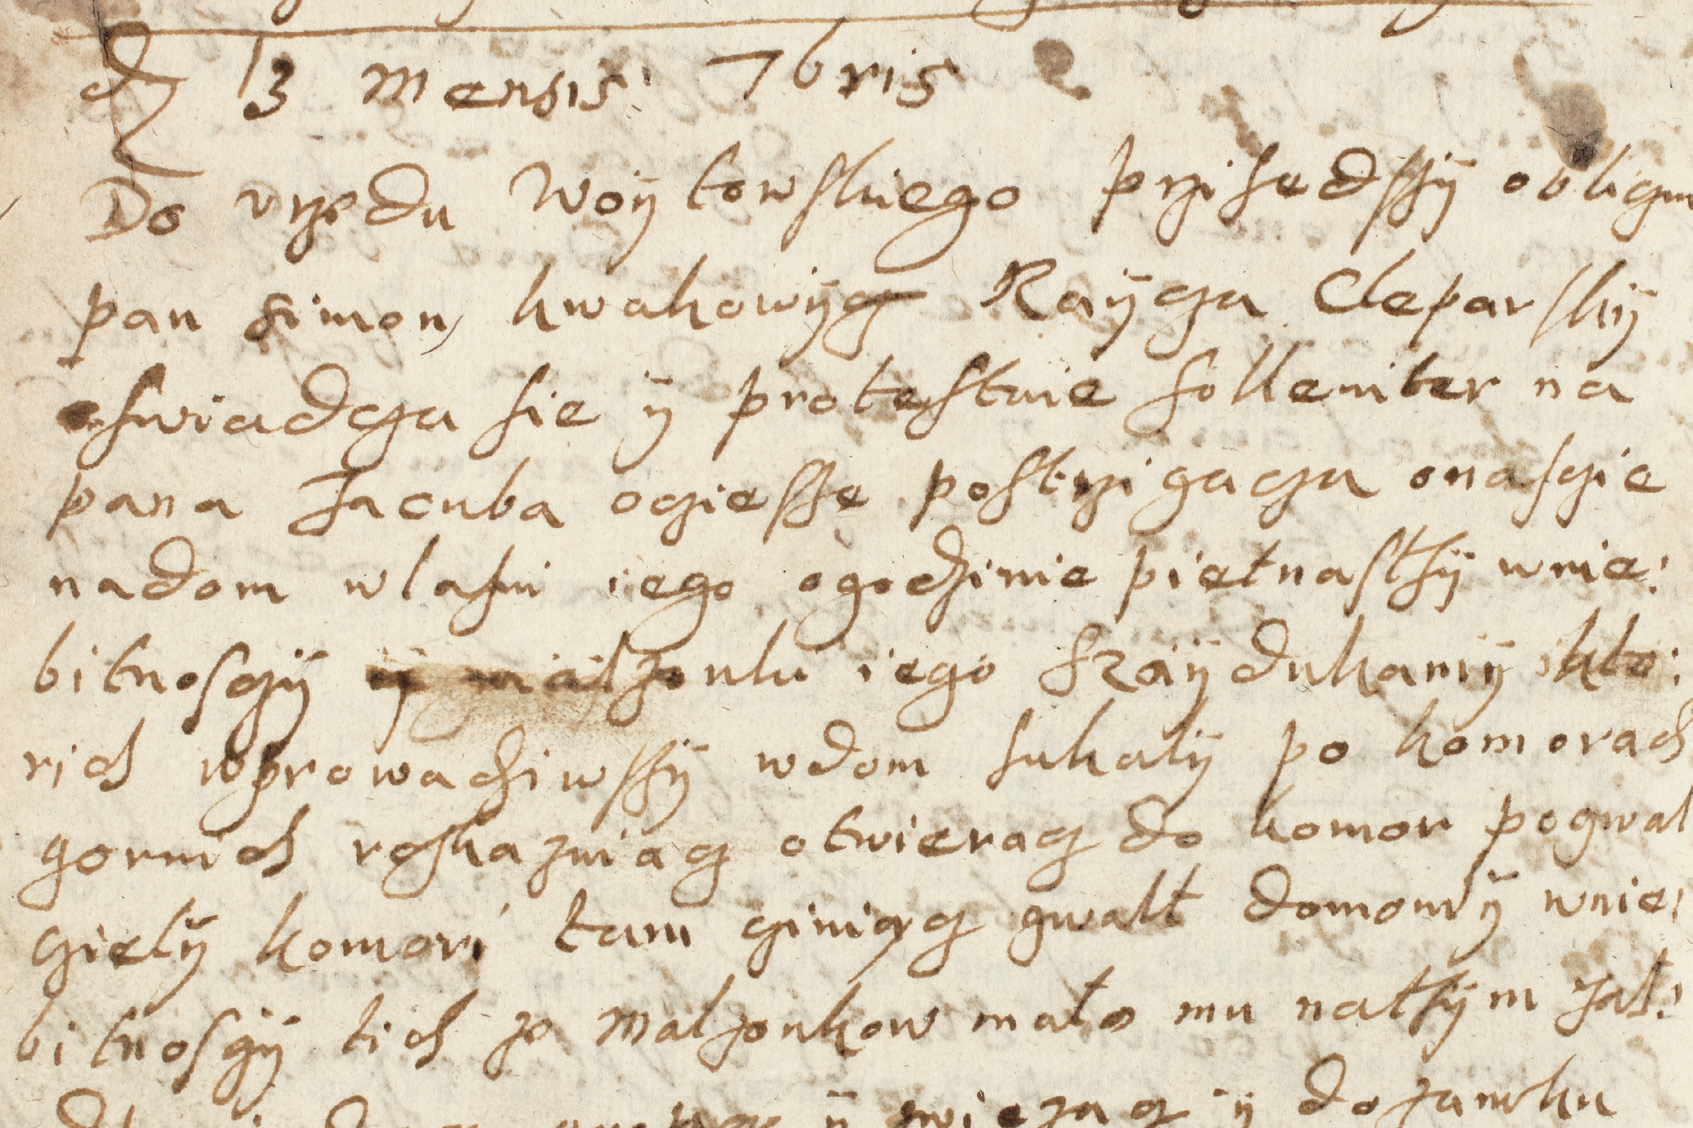 d 13 Mensis 7bris
Do vrzedu Woÿtowskiego przisedssÿ obligm
pan Simon kwakowÿcz Raÿcza Cleparskÿ
oswiadcza sie ÿ protestuie solleniter na
pana Jacuba ocziesse postrzigacza onasczie
nadom wlasni iego ogodzinie pietnastsÿ wnie:
bitnosczÿ ÿ malzonku iego szaÿdukamÿ kto:
rich wprowadziwssÿ wdom sukalÿ po komorach
gornich roskazuiacz otwieracz do komor pogwal
czielÿ komori tam cziniacz gwalt domowÿ wnie:
bitnosczÿ tich ze Malzonkow malo mu natsÿm zal:
ÿ do zamku